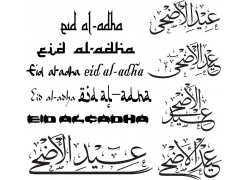 eid al-adha
عيد الأضحى
eid al-adha
Eid aladha eid al-adha
عيد الأضحى
Eid al-adha eid al-adha
عيد الأضحى
EID ALCADHA
عيد الأضحى
عيد الأضحى